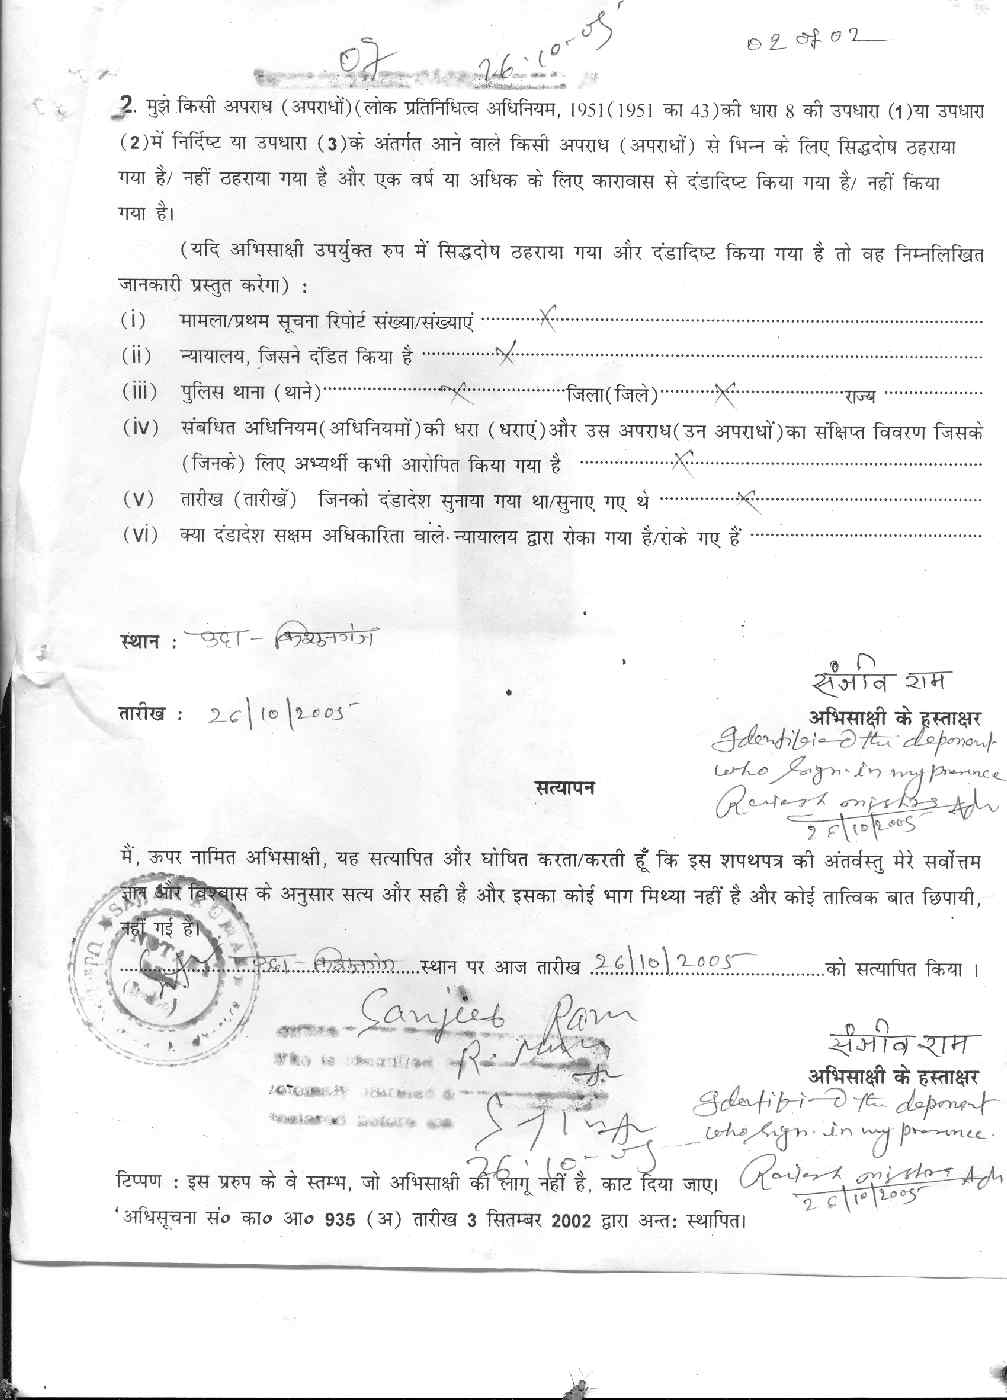 07 26.10-05
02 of 02
2. मुझे किसी अपराध (अपराधों)(लोक प्रतिनिधित्व अधिनियम, 1951(1951 का 43)की धारा 8 की उपधारा (1)या उपधारा
(2)में निर्दिष्ट या उपधारा (3)के अंतर्गत आने वाले किसी अपराध (अपराधों) से भिन्न के लिए सिद्धदोष ठहराया
गया है/ नहीं ठहराया गया है और एक वर्ष या अधिक के लिए कारावास से दंडादिष्ट किया गया है/ नहीं किया
गया है।
(यदि अभिसाक्षी उपर्युक्त रुप में सिद्धदोष ठहराया गया और दंडादिष्ट किया गया है तो वह निम्नलिखित
जानकारी प्रस्तुत करेगा) :
(i) मामला/प्रथम सूचना रिपोर्ट संख्या/संख्याएं ..........X..........
(ii) न्यायालय, जिसने दंडित किया है ..........X..........
(iii) पुलिस थाना (थाने)..........X..........जिला(जिले)..........X..........राज्य ..........
(iv) संबधित अधिनियम(अधिनियमों)की धरा (धराएं)और उस अपराध(उन अपराधों)का संक्षिप्त विवरण जिसके
(जिनके) लिए अभ्यर्थी कभी आरोपित किया गया है ..........X..........
(v) तारीख (तारीखें) जिनको दंडादेश सुनाया गया था/सुनाए गए थे ..........X..........
(vi) क्या दंडादेश सक्षम अधिकारिता वाले न्यायालय द्वारा रोका गया है/रोके गए हैं ..........
स्थान : उदा-किशुनगंज
संजीव राम
तारीख : 26/10/2005
अभिसाक्षी के हस्ताक्षर
Identified the deponent
who sign in my presence
Adv
26/10/2005
सत्यापन
मैं, ऊपर नामित अभिसाक्षी, यह सत्यापित और घोषित करता/करती हूँ कि इस शपथपत्र की अंतर्वस्तु मेरे सर्वोत्तम
ज्ञान और विश्वास के अनुसार सत्य और सही है और इसका कोई भाग मिथ्या नहीं है और कोई तात्विक बात छिपायी,
नहीं गई है।
..........उदा-किशुनगंज....स्थान पर आज तारीख 26/10/2005..........को सत्यापित किया ।
Sanjeeb Ram
संजीव राम
अभिसाक्षी के हस्ताक्षर
Identified the deponent
who sign in my presence.
Adv
26/10/2005
26.10-05
टिप्पण : इस प्ररुप के वे स्तम्भ, जो अभिसाक्षी की लागू नहीं है, काट दिया जाए।
'अधिसूचना सं० का० आ० 935 (अ) तारीख 3 सितम्बर 2002 द्वारा अन्त: स्थापित।